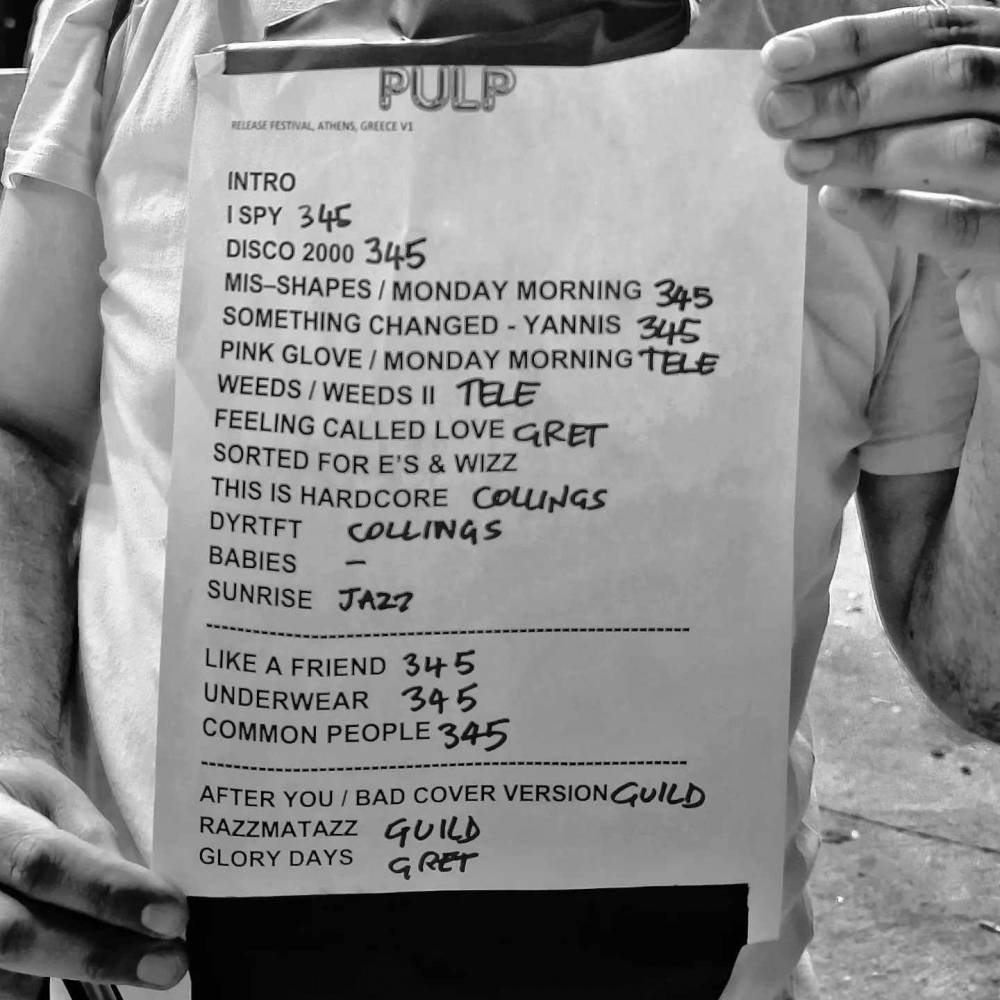 PULP
RELEASE FESTIVAL, ATHENS, GREECE V1
INTRO
I SPY 345
DISCO 2000 345
MIS–SHAPES / MONDAY MORNING 345
SOMETHING CHANGED - YANNIS 345
PINK GLOVE / MONDAY MORNING TELE
WEEDS / WEEDS II TELE
FEELING CALLED LOVE GRET
SORTED FOR E'S & WIZZ
THIS IS HARDCORE COLLINGS
DYRTFT COLLINGS
BABIES –
SUNRISE JAZZ
LIKE A FRIEND 345
UNDERWEAR 345
COMMON PEOPLE 345
AFTER YOU / BAD COVER VERSION GUILD
RAZZMATAZZ GUILD
GLORY DAYS GRET